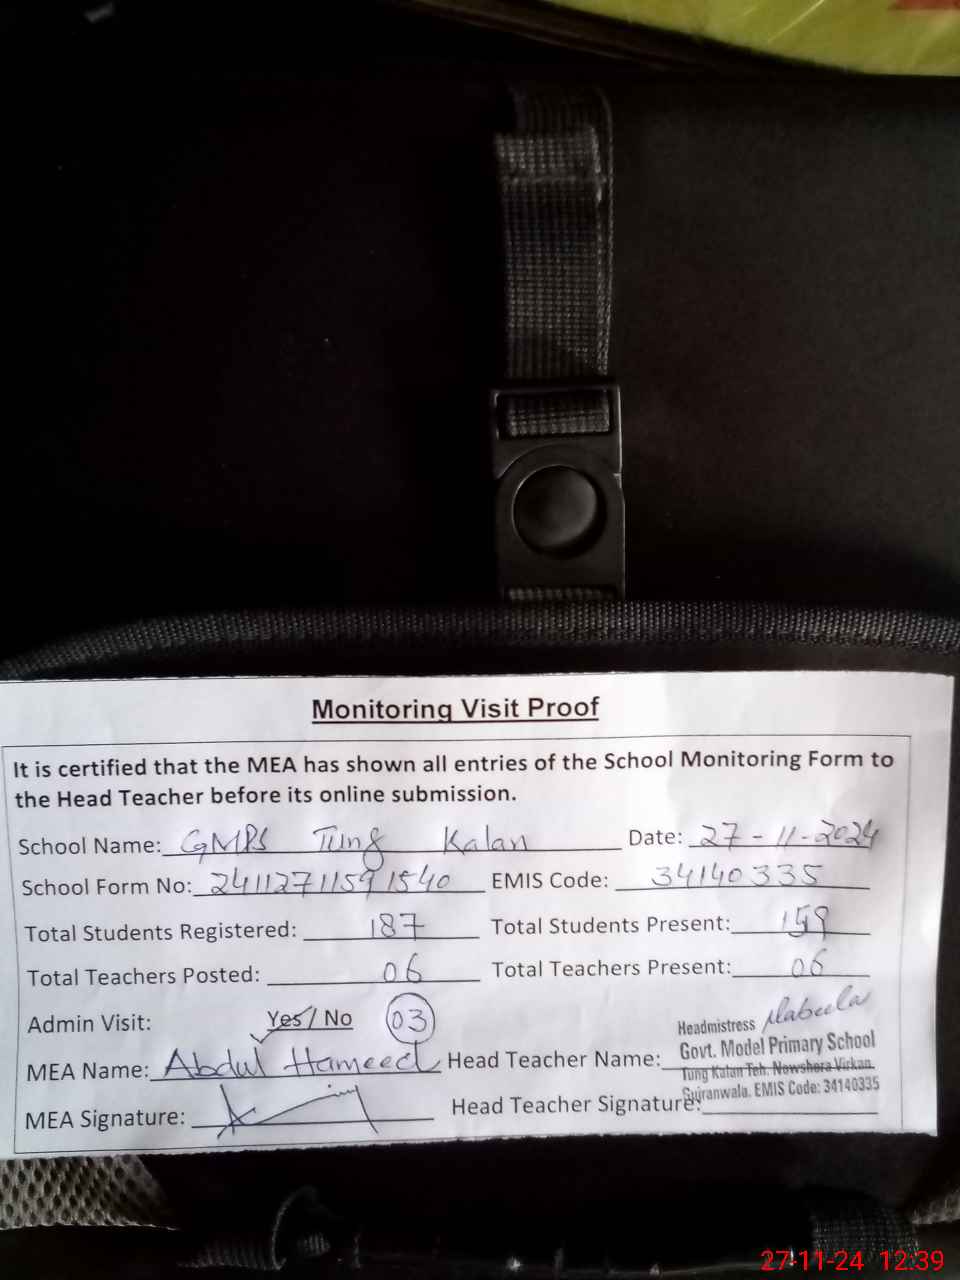 Monitoring Visit Proof
It is certified that the MEA has shown all entries of the School Monitoring Form to
the Head Teacher before its online submission.
School Name: GMPS Tung Kalan Date: 27-11-2024
School Form No: 24112711591540 EMIS Code: 34140335
Total Students Registered: 187 Total Students Present: 159
Total Teachers Posted: 06 Total Teachers Present: 06
Admin Visit: Yes / No 03
MEA Name: Abdul Hameed Head Teacher Name:
Nabeela
Headmistress
Govt. Model Primary School
Tung Kalan Teh. Nowshera Virkan.
Gujranwala. EMIS Code: 34140335
MEA Signature: Head Teacher Signature:
27-11-24 12:39